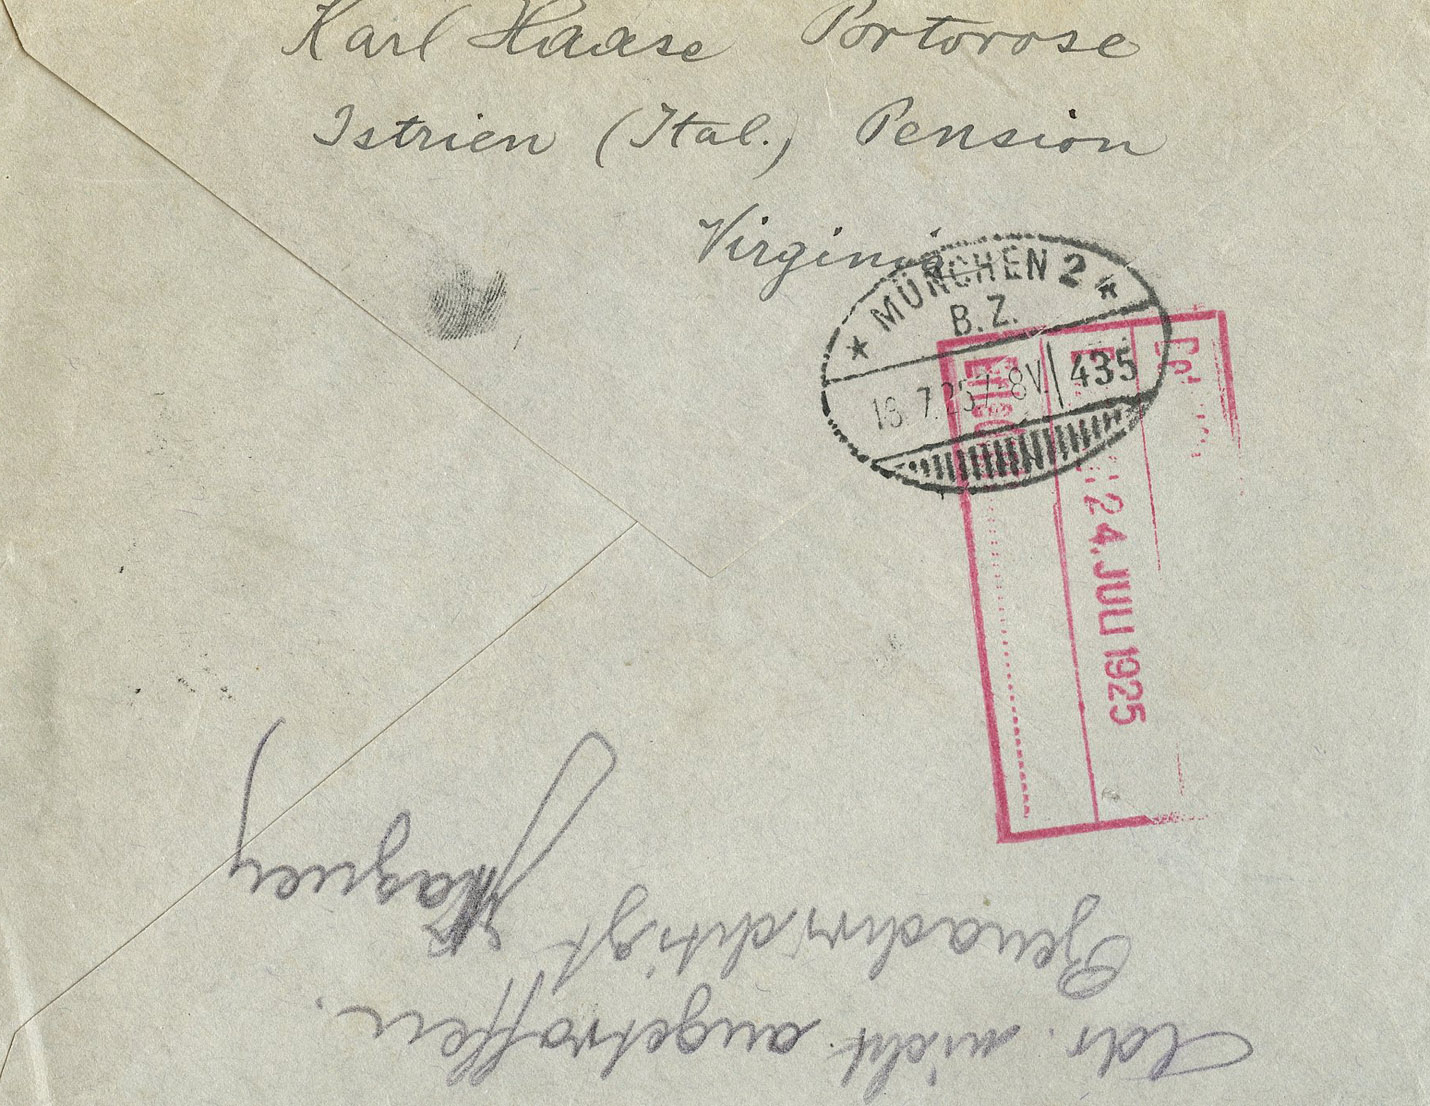 Karl Haase Portorose
Istrien (Ital.) Pension
Virginia
* MÜNCHEN 2 *
B.Z.
18.7.25 7-8V. 435
24. JULI 1925
Adr. nicht angetroffen.
Benachrichtigt